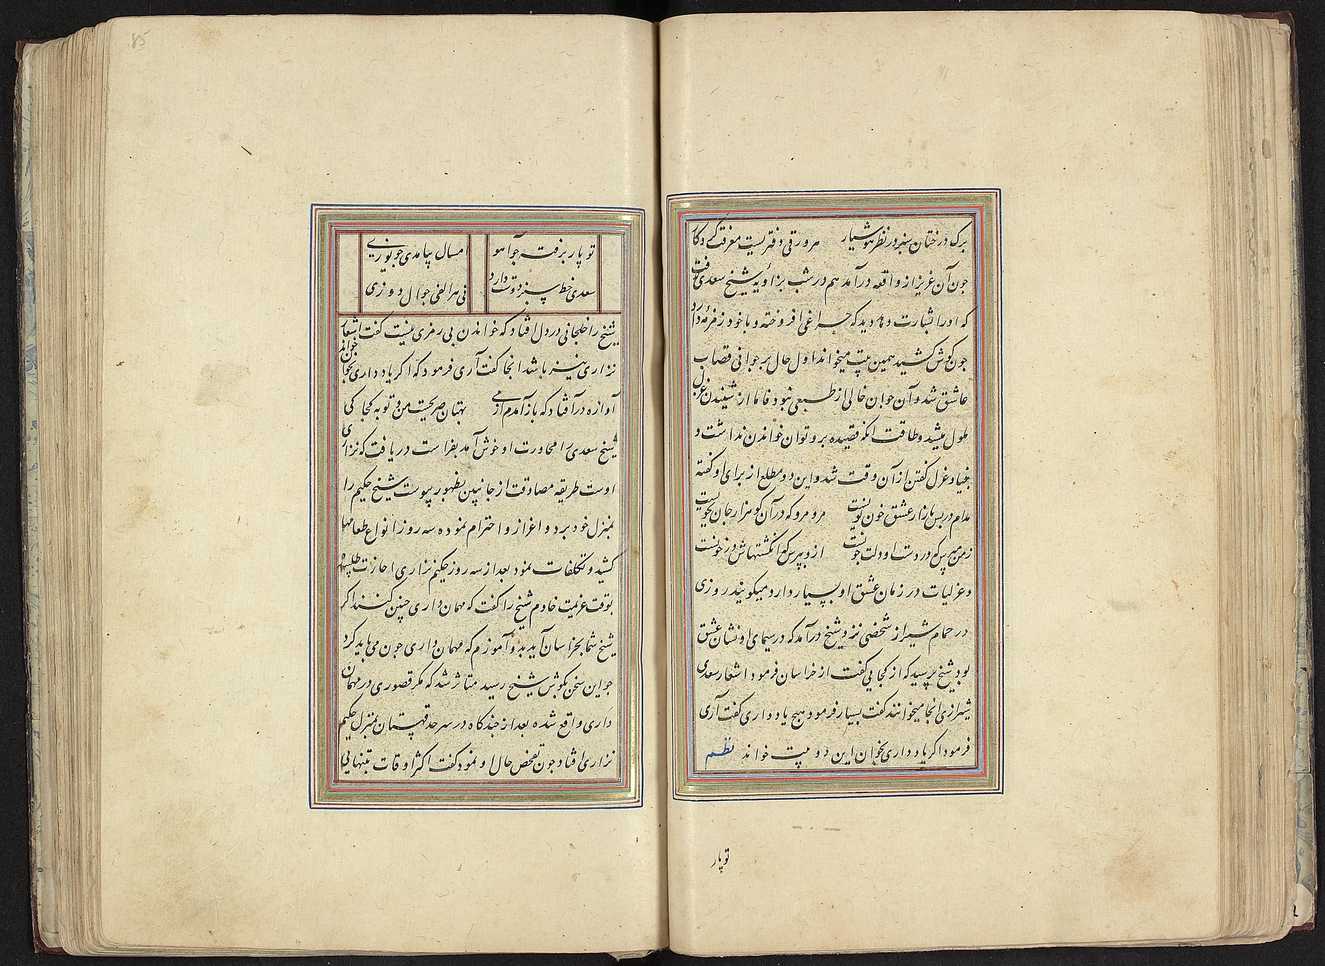 برک درختان سبز در نظر هوشیار هر ورقی دفتریست معرفت کردکار
چون آن عزیز از واقعه درآمد هم در شب بزاویه شیخ سعدی رفت
که او را بشارت دهد دید که چراغی افروخته و با خود زمزمه دارد
چون کوش کشید همین بیت میخواند اول حال بر جوانی قصاب
عاشق شد و آن جوان خالی از طبعی نبود فاما از شنیدن غزل
ملول میشد و طاقت آنکه قصیده برو توان خواندن نداشت و
بنیاد غزل کفتن از آن وقت شد و این دو مطلع از برای او کفته
مدام در پس بازار عشق خون نویست مرو مرو که در آن کو هزار جان بجویست
زمن مپرس که در دست او دلت چونست ازو بپرس که انکشتهاش در خونست
و غزلیات در زمان عشق او بسیار دارد میکویند روزی
در حمام شیراز شخصی نزد شیخ درآمد که در سیمای او نشان عشق
بود شیخ پرسید که از کجایی کفت از خراسان فرمود اشعار سعدی
شیرازی آنجا میخوانند کفت بسیار فرمود هیچ یاد داری کفت آری
فرمود اکر یاد داری بخوان این دو بیت خواند نظم
تو پار
۲۵
تو پار برفته چو آهو امسال بیامدی چو یوزی
سعدی خط سبز دوست دارد نی هر الفی جوال دوزی
شیخ را خلجانی در دل افتاد که خواندن بی رمزی نیست کفت اشعار
نزاری نیز باشد آنجا کفت آری فرمود که اکر یاد داری بخوان
آوازه درافتاد که باز آمدم از می بهتان صریحست من و توبه کجا کی
شیخ سعدی را محاورت او خوش آمد بفراست دریافت که نزاری
اوست طریقه مصادقت از جانبین بظهور پیوست شیخ حکیم را
بمنزل خود برد و اعزاز و احترام نموده سه روز انواع طعامها
کشید و تکلفات نمود بعد از سه روز حکیم نزاری اجازت طلبیده
بوقت عزیمت خادم شیخ را کفت که مهمان داری چنین کنند اکر
شیخ شما بخراسان آید بدو آموزم که مهمان داری چون می باید کرد
چو این سخن بکوش شیخ رسید متاثر شد که مکر قصوری در مهمان
داری واقع شده بعد از چندکاه در سرحد قهستان بمنزل حکیم
نزاری افتاد چون تفحص حال او نمود کفت اکثر اوقات بتنهایی